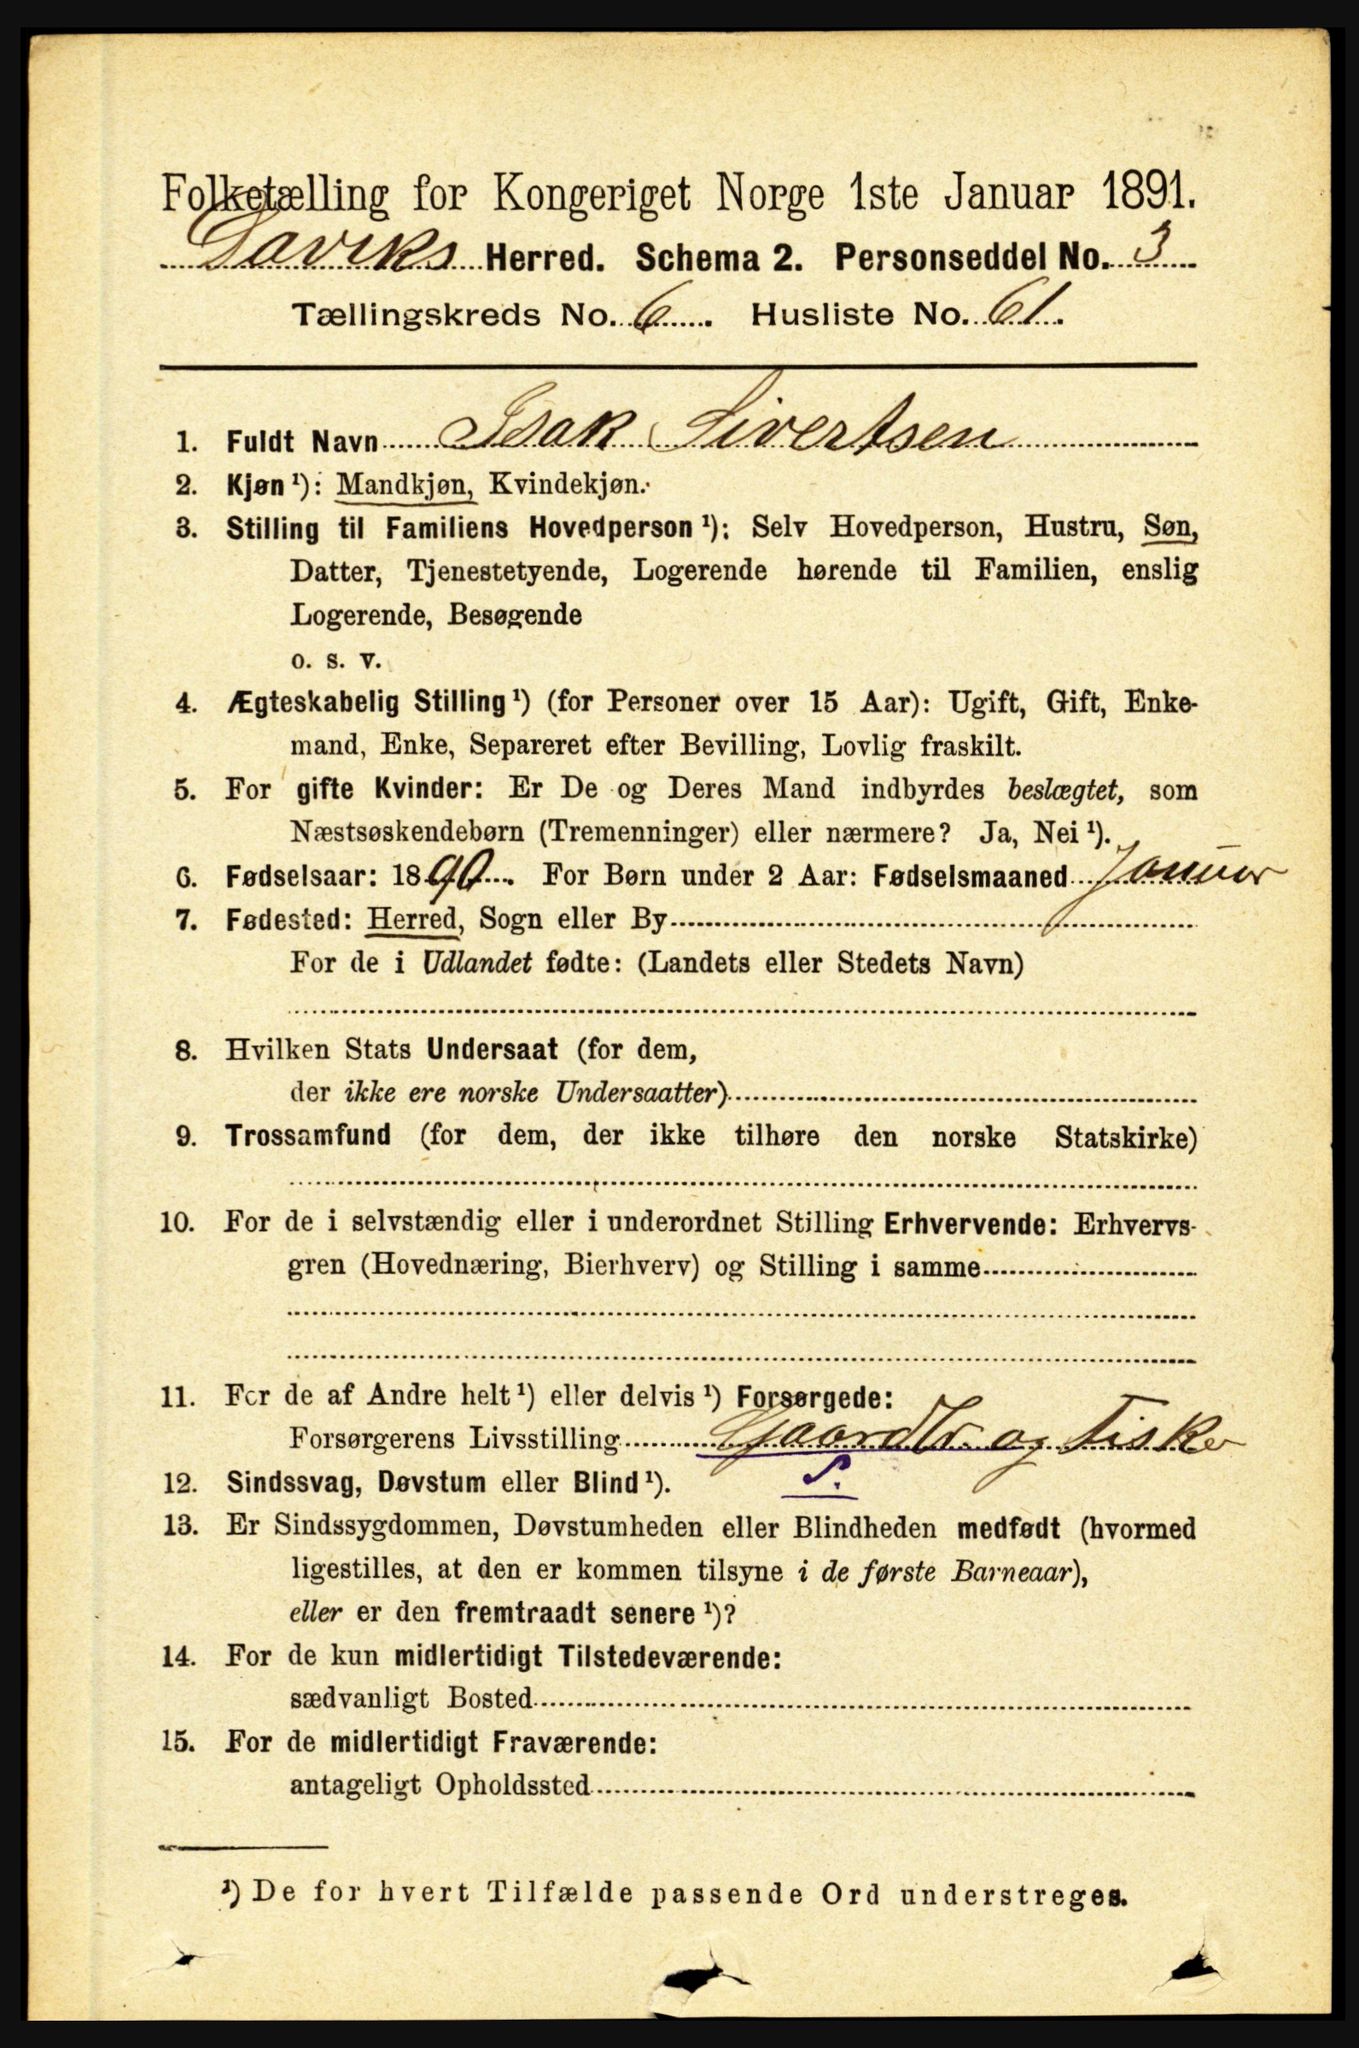 Folketælling for Kongeriget Norge 1ste Januar 1891.
Daviks Herred. Schema 2. Personseddel No. 3
Tællingskreds No. 6. Husliste No. 61.
1. Fuldt Navn Isak Sivertsen
2. Kjøn ¹): Mandkjøn, Kvindekjøn.
3. Stilling til Familiens Hovedperson ¹): Selv Hovedperson, Hustru, Søn,
Datter, Tjenestetyende, Logerende hørende til Familien, enslig
Logerende, Besøgende
o. s. v.
4. Ægteskabelig Stilling ¹) (for Personer over 15 Aar): Ugift, Gift, Enke-
mand, Enke, Separeret efter Bevilling, Lovlig fraskilt.
5. For gifte Kvinder: Er De og Deres Mand indbyrdes beslægtet, som
Næstsøskendebørn (Tremenninger) eller nærmere? Ja, Nei ¹).
6. Fødselsaar: 1890. For Børn under 2 Aar: Fødselsmaaned Januar
7. Fødested: Herred, Sogn eller By
For de i Udlandet fødte: (Landets eller Stedets Navn)
8. Hvilken Stats Undersaat (for dem,
der ikke ere norske Undersaatter)
9. Trossamfund (for dem, der ikke tilhøre den norske Statskirke)
10. For de i selvstændig eller i underordnet Stilling Erhvervende: Erhvervs-
gren (Hovednæring, Bierhverv) og Stilling i samme
11. For de af Andre helt ¹) eller delvis ¹) Forsørgede:
Forsørgerens Livsstilling Gaardbr. og Fisker
S.
12. Sindssvag, Døvstum eller Blind ¹).
13. Er Sindssygdommen, Døvstumheden eller Blindheden medfødt (hvormed
ligestilles, at den er kommen tilsyne i de første Barneaar),
eller er den fremtraadt senere ¹)?
14. For de kun midlertidigt Tilstedeværende:
sædvanligt Bosted
15. For de midlertidigt Fraværende:
antageligt Opholdssted
¹) De for hvert Tilfælde passende Ord understreges.